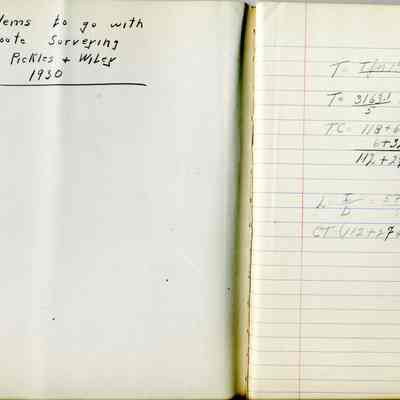 lems to go with
oute Surveying
Pickles + Wiley
1930
T =
T = 3163.1
5
TC = 118+6
6+3
112+2
L = I = 5
D
CT (112+27+